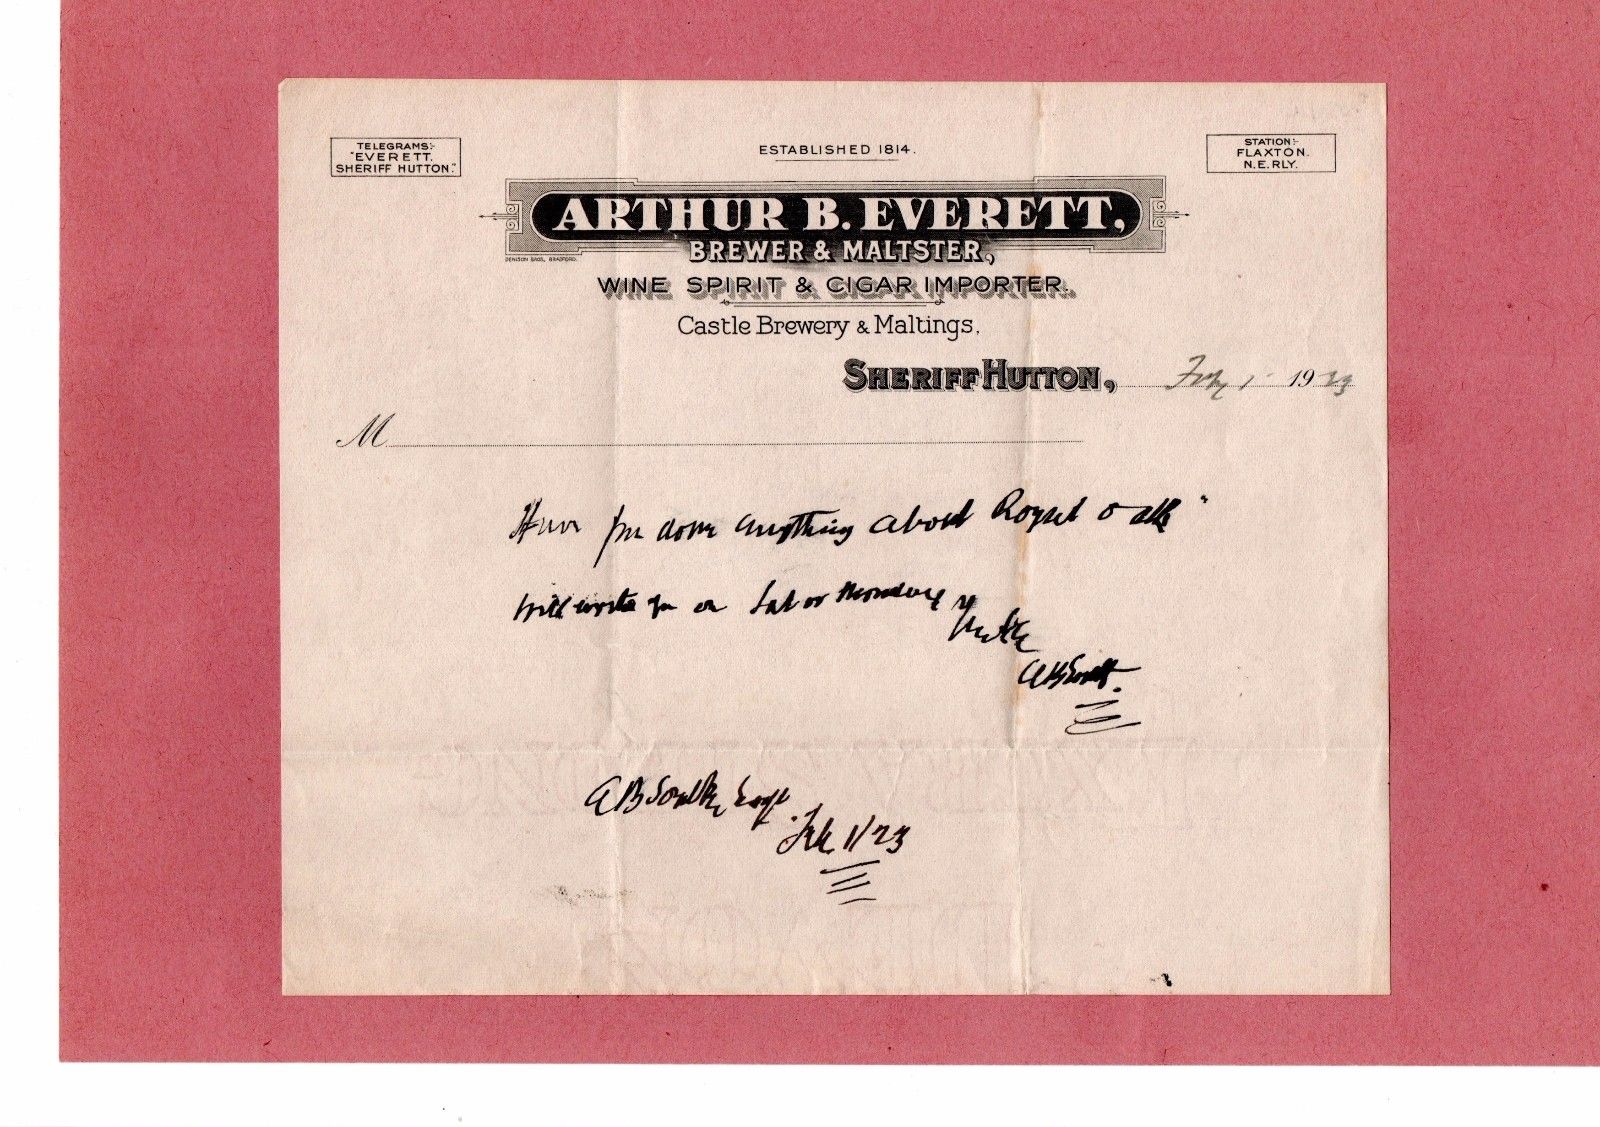 TELEGRAMS:-
"EVERETT,
SHERIFF HUTTON."
ESTABLISHED 1814.
STATION:-
FLAXTON.
N.E.RLY.
ARTHUR B. EVERETT,
BREWER & MALTSTER,
DENISON BROS, BRADFORD.
WINE SPIRIT & CIGAR IMPORTER.
Castle Brewery & Maltings.
SHERIFF HUTTON, Feby 1 1923
M
Have you done anything about Royal Oak"
Will write you on Sat or Monday
A B
A B Esqr
Feb 1/23